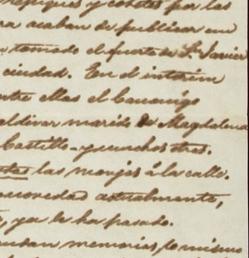 repiques y cohetes por las
ra acaban de publicar en
tomado el fuerte de S. Javier
ciudad. En el interin
ntre ellos el Canonigo
aldivar marido de Magdalena
Castillo y muchos otros.
las monjas á la calle.
novedad actualmente,
, ya le ha pasado.
memorias, lo mismo